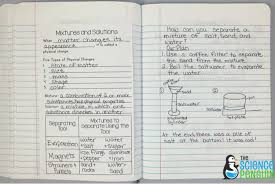 Mixtures and Solutions
When matter changes its
appearance it is called a
physical change.
Five Types of Physical Changes
1. state of matter
2. size
3. mass
4. shape
5. color
Mixture: a combination of 2 or more
substances has physical properties
Solution: a mixture in which one
substance dissolves in another
Separating
Tool
Mixtures to
Separate Using the
Tool
Evaporation
water
salt
water
sugar
Magnets
Strainers
Funnels
water
water
How can you separate a
mixture of salt, sand, and
water?
Our Plan
1. Use a coffee filter to separate
the sand from the mixture.
2. Boil the salt water to evaporate
the water.
At the end there was a pile of
salt at the bottom! It was cool!
THE
SCIENCE
PENGUIN